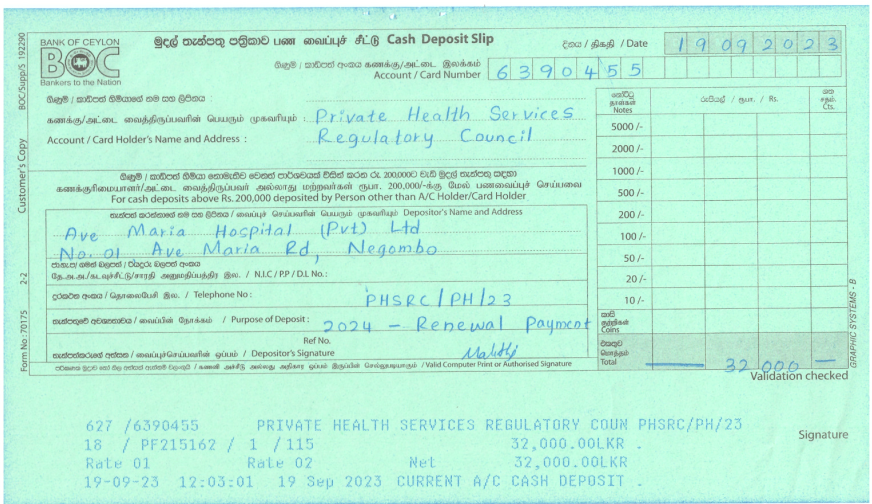 BOC/Supp/S 192290
Customer's Copy
2-2
Form No: 70175
BANK OF CEYLON
BOC
Bankers to the Nation
මුදල් තැන්පතු පත්‍රිකාව பண வைப்புச் சீட்டு Cash Deposit Slip
දිනය / திகதி / Date 19092023
ගිණුම් / කාඩ්පත් අංකය கணக்கு/அட்டை இலக்கம்
Account / Card Number 6390455
ගිණුම් / කාඩ්පත් හිමියාගේ නම සහ ලිපිනය :
கணக்கு/அட்டை வைத்திருப்பவரின் பெயரும் முகவரியும் : Private Health Services
Account / Card Holder's Name and Address : Regulatory Council
ගිණුම් / කාඩ්පත් හිමියා නොමැතිව වෙනත් පාර්ශවයක් විසින් කරන රු. 200,000ට වැඩි මුදල් තැන්පතු සඳහා
கணக்குரிமையாளர்/அட்டை வைத்திருப்பவர் அல்லாது மற்றவர்கள் ரூபா. 200,000/-க்கு மேல் பணவைப்புச் செய்பவை
For cash deposits above Rs. 200,000 deposited by Person other than A/C Holder/Card Holder
තැන්පත් කරන්නාගේ නම සහ ලිපිනය / வைப்புச் செய்பவரின் பெயரும் முகவரியும் Depositor's Name and Address
Ave Maria Hospital (Pvt) Ltd
No. 01 Ave Maria Rd, Negombo
ජා.හැ.ප/ ගමන් බලපත් / රියදුරු බලපත් අංකය
தே.அ.அ/கடவுச்சீட்டு/சாரதி அனுமதிப்பத்திர இல. / N.I.C / P.P / D.L No.:
දුරකථන අංකය / தொலைபேசி இல. / Telephone No : PHSRC/PH/23
තැන්පතුවේ අවශ්‍යතාවය / வைப்பின் நோக்கம் / Purpose of Deposit : 2024 – Renewal Payment
Ref No.
තැන්පත්කරුගේ අත්සන / வைப்புச்செய்பவரின் ஒப்பம் / Depositor's Signature
/ Valid Computer Print or Authorised Signature
නෝට්ටු
தாள்கள்
Notes
රුපියල් / ரூபா. / Rs.
ශත
சதம்.
Cts.
5000 /-
2000 /-
1000 /-
500 /-
200 /-
100 /-
50 /-
20 /-
10 /-
කාසි
குற்றிகள்
Coins
එකතුව
மொத்தம்
Total 32 000 —
GRAPHIC SYSTEMS - B
Validation checked
Signature
627 /6390455 PRIVATE HEALTH SERVICES REGULATORY COUN PHSRC/PH/23
18 / PF215162 / 1 /115 32,000.00LKR .
Rate 01 Rate 02 Net 32,000.00LKR
19-09-23 12:03:01 19 Sep 2023 CURRENT A/C CASH DEPOSIT .